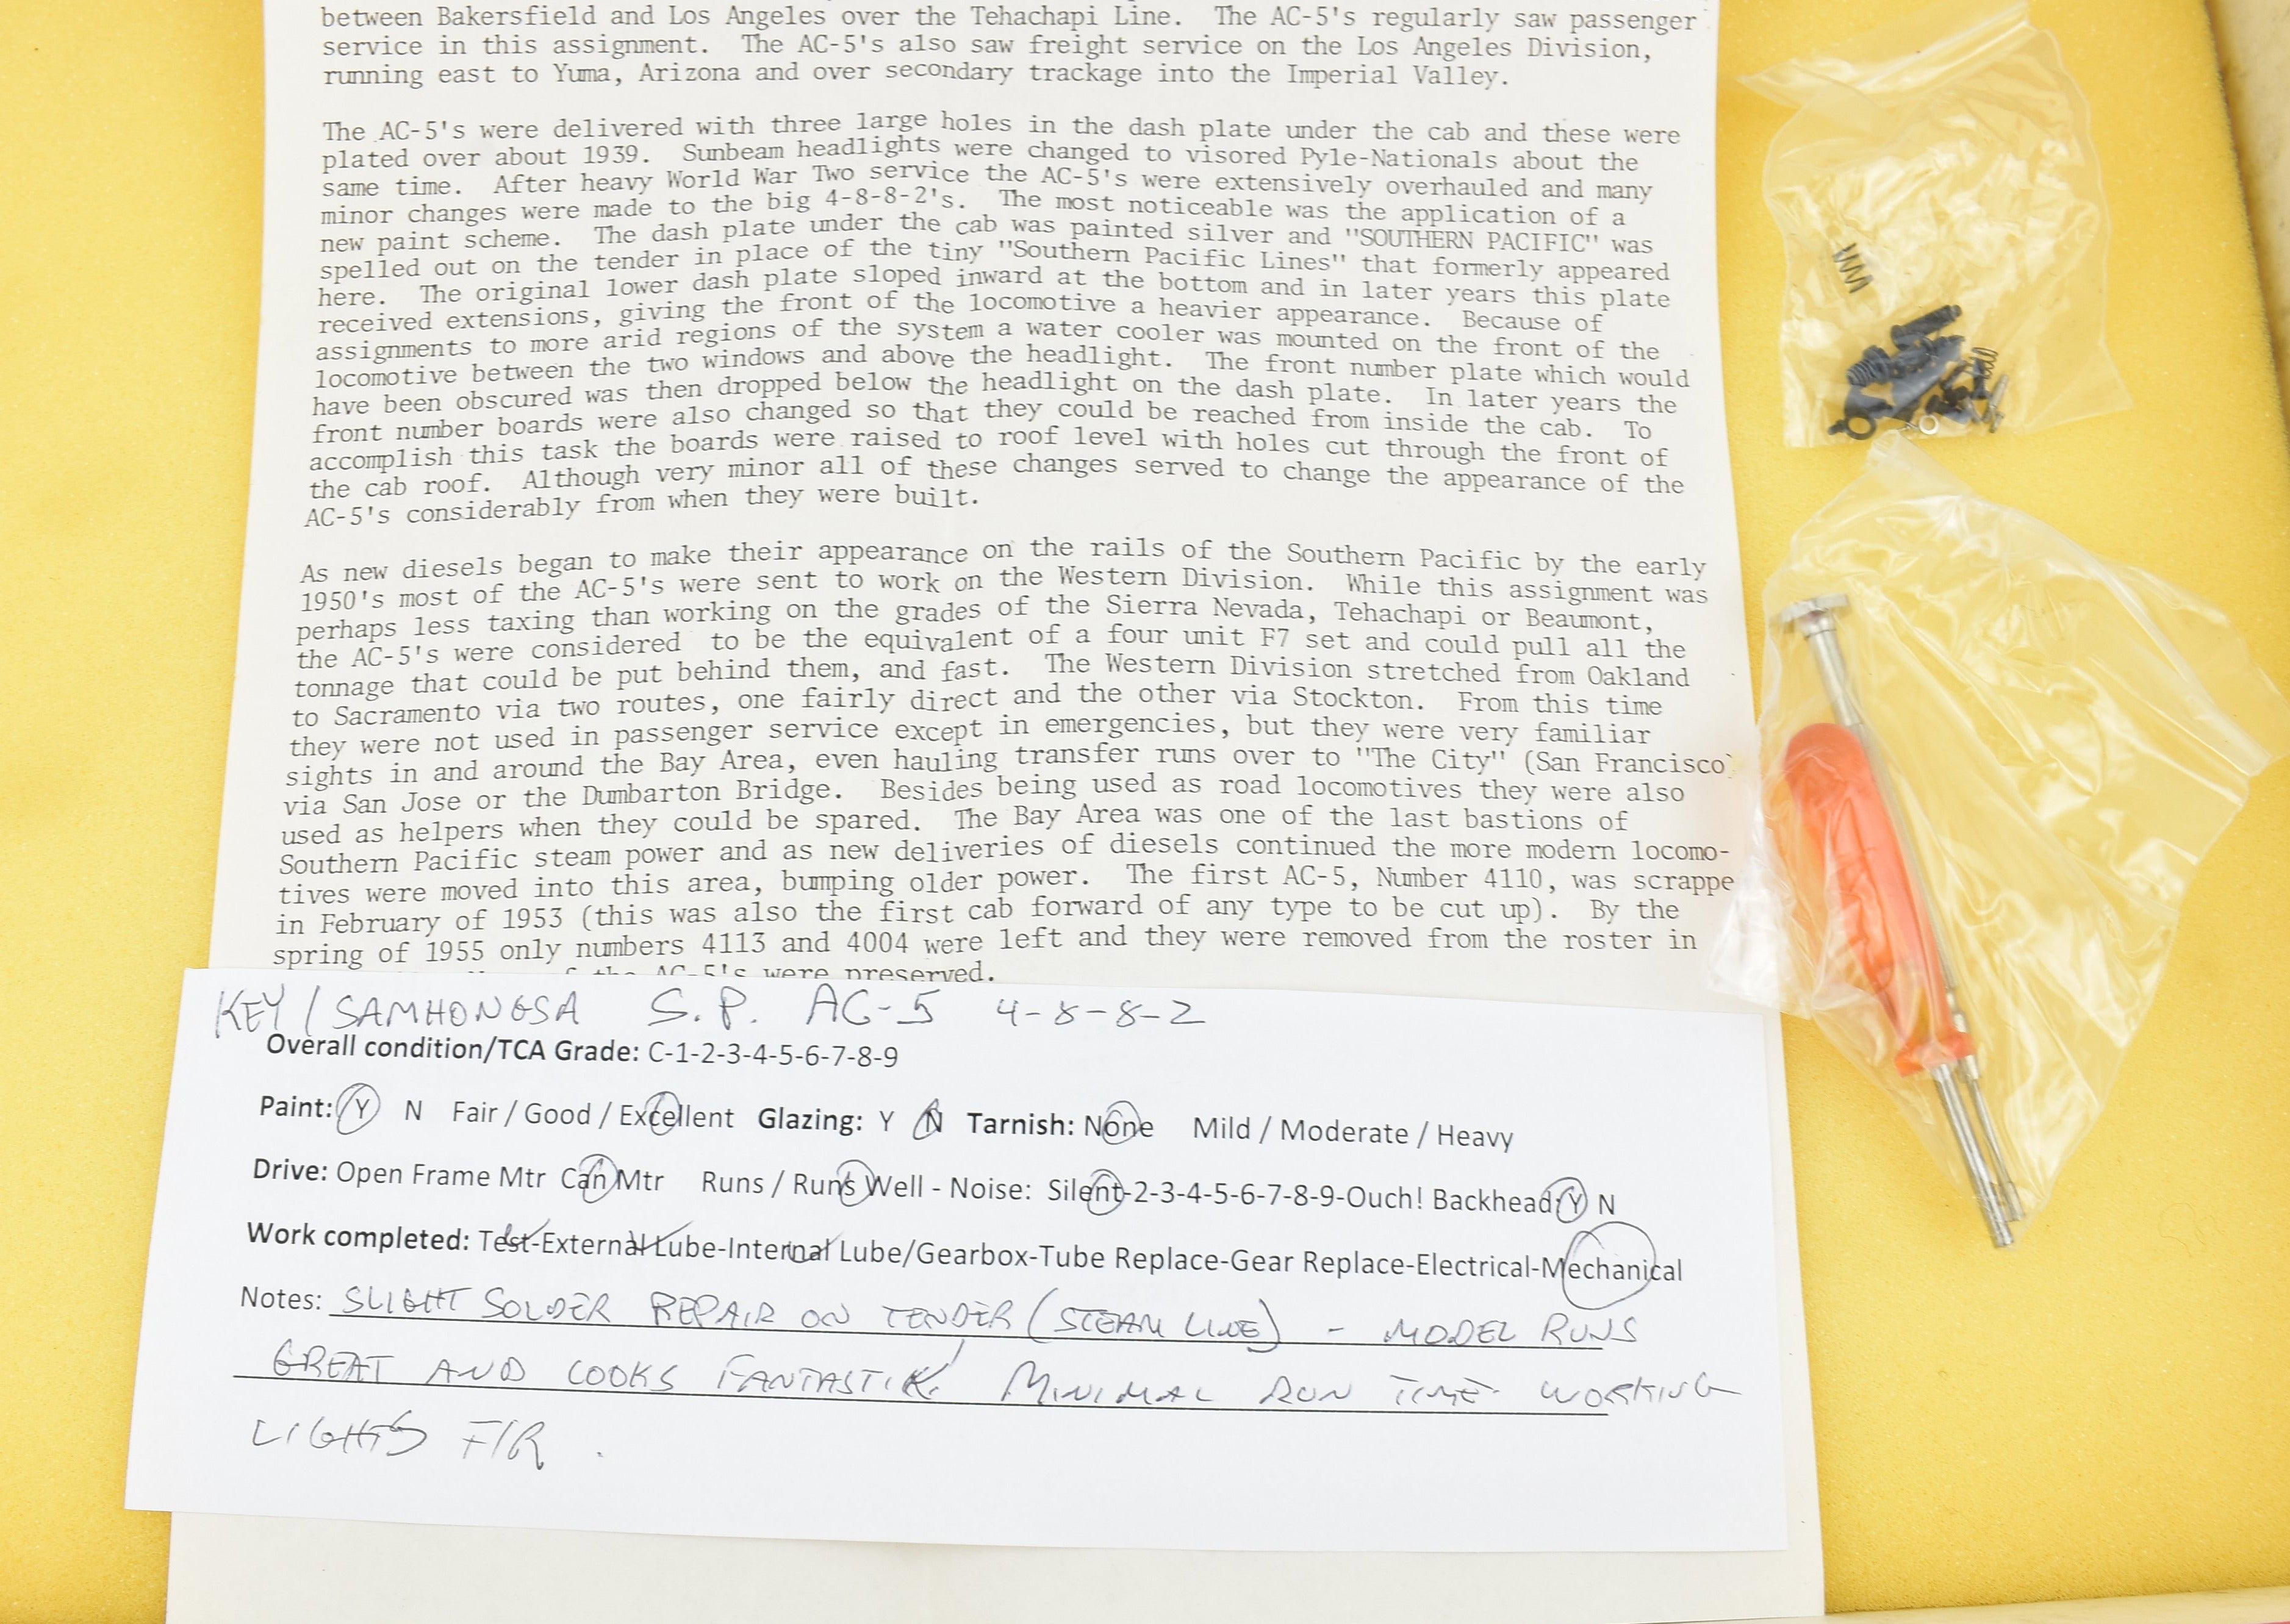 between Bakersfield and Los Angeles over the Tehachapi Line. The AC-5's regularly saw passenger
service in this assignment. The AC-5's also saw freight service on the Los Angeles Division,
running east to Yuma, Arizona and over secondary trackage into the Imperial Valley.
The AC-5's were delivered with three large holes in the dash plate under the cab and these were
plated over about 1939. Sunbeam headlights were changed to visored Pyle-Nationals about the
same time. After heavy World War Two service the AC-5's were extensively overhauled and many
minor changes were made to the big 4-8-8-2's. The most noticeable was the application of a
new paint scheme. The dash plate under the cab was painted silver and "SOUTHERN PACIFIC" was
spelled out on the tender in place of the tiny "Southern Pacific Lines" that formerly appeared
here. The original lower dash plate sloped inward at the bottom and in later years this plate
received extensions, giving the front of the locomotive a heavier appearance. Because of
assignments to more arid regions of the system a water cooler was mounted on the front of the
locomotive between the two windows and above the headlight. The front number plate which would
have been obscured was then dropped below the headlight on the dash plate. In later years the
front number boards were also changed so that they could be reached from inside the cab. To
accomplish this task the boards were raised to roof level with holes cut through the front of
the cab roof. Although very minor all of these changes served to change the appearance of the
AC-5's considerably from when they were built.
As new diesels began to make their appearance on the rails of the Southern Pacific by the early
1950's most of the AC-5's were sent to work on the Western Division. While this assignment was
perhaps less taxing than working on the grades of the Sierra Nevada, Tehachapi or Beaumont,
the AC-5's were considered to be the equivalent of a four unit F7 set and could pull all the
tonnage that could be put behind them, and fast. The Western Division stretched from Oakland
to Sacramento via two routes, one fairly direct and the other via Stockton. From this time
they were not used in passenger service except in emergencies, but they were very familiar
sights in and around the Bay Area, even hauling transfer runs over to "The City" (San Francisco)
via San Jose or the Dumbarton Bridge. Besides being used as road locomotives they were also
used as helpers when they could be spared. The Bay Area was one of the last bastions of
Southern Pacific steam power and as new deliveries of diesels continued the more modern locomo-
tives were moved into this area, bumping older power. The first AC-5, Number 4110, was scrappe
in February of 1953 (this was also the first cab forward of any type to be cut up). By the
spring of 1955 only numbers 4113 and 4004 were left and they were removed from the roster in
of the AC-5's were preserved.
KEY/SAMHONGSA S.P. AC-5 4-8-8-2
Overall condition/TCA Grade: C-1-2-3-4-5-6-7-8-9
Paint: Y N Fair / Good / Excellent Glazing: Y N Tarnish: None Mild / Moderate / Heavy
Drive: Open Frame Mtr Can Mtr Runs / Runs Well - Noise: Silent-2-3-4-5-6-7-8-9-Ouch! Backhead: Y N
Work completed: Test-External Lube-Internal Lube/Gearbox-Tube Replace-Gear Replace-Electrical-Mechanical
Notes: SLIGHT SOLDER REPAIR ON TENDER (STEAM LINE) - MODEL RUNS
GREAT AND LOOKS FANTASTIC! MINIMAL RUN TIME. WORKING
LIGHTS F/R.